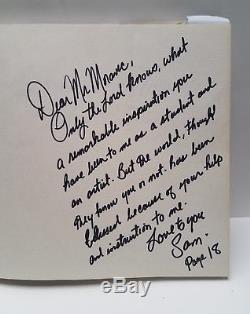 Dear Mr Morane,
Only the Lord knows, what
a remarkable inspiration you
have been to me as a student and
an artist. But the world, thought
they know you or not. has been
blessed because of your help
and instruction to me.
Love to you
Sam.
Page 18